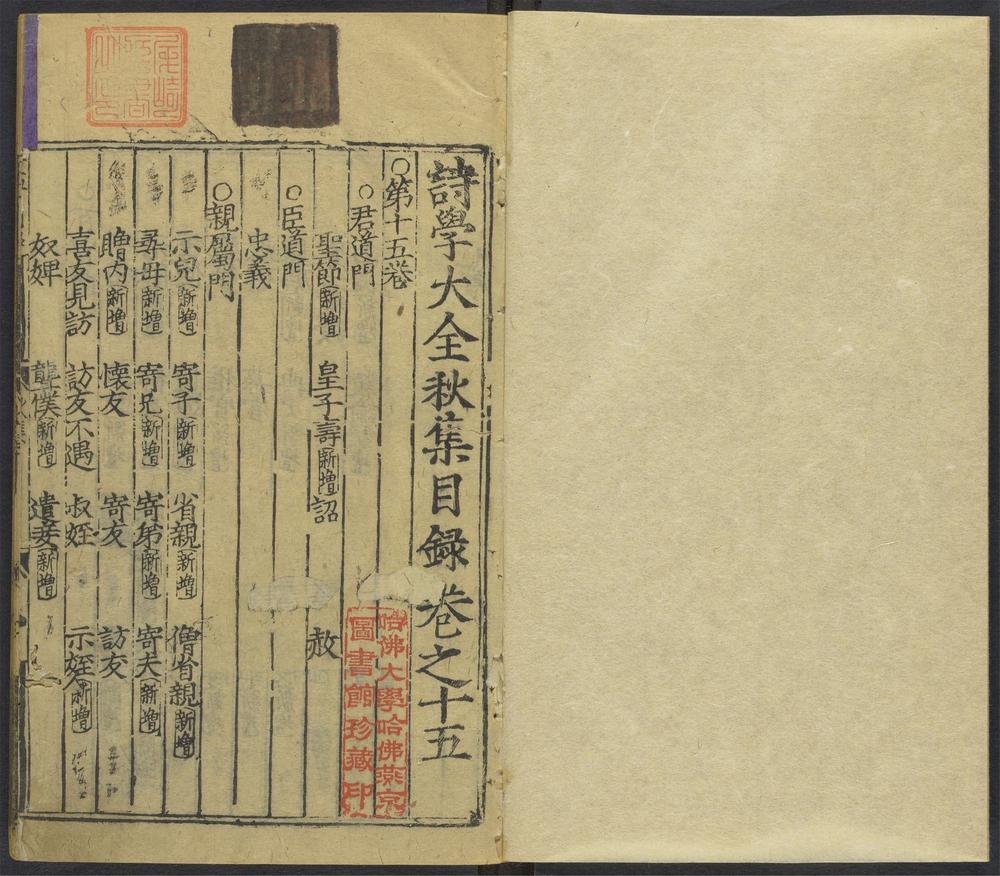 詩學大全秋集目録卷之十五
○第十五卷
○君道門
聖節新增 皇子壽新增 詔 赦
○臣道門
忠義
○親屬門
示兒新增 寄子新增 省親新增 僧省親新增
尋母新增 寄兄新增 寄弟新增 寄夫新增
贈内新增 懐友 寄友 訪友
喜友見訪 訪友不遇 叔姪 示姪新增
奴婢 聾僕新增 遣妾新增
哈佛大學哈佛燕京
圖書館珍藏印